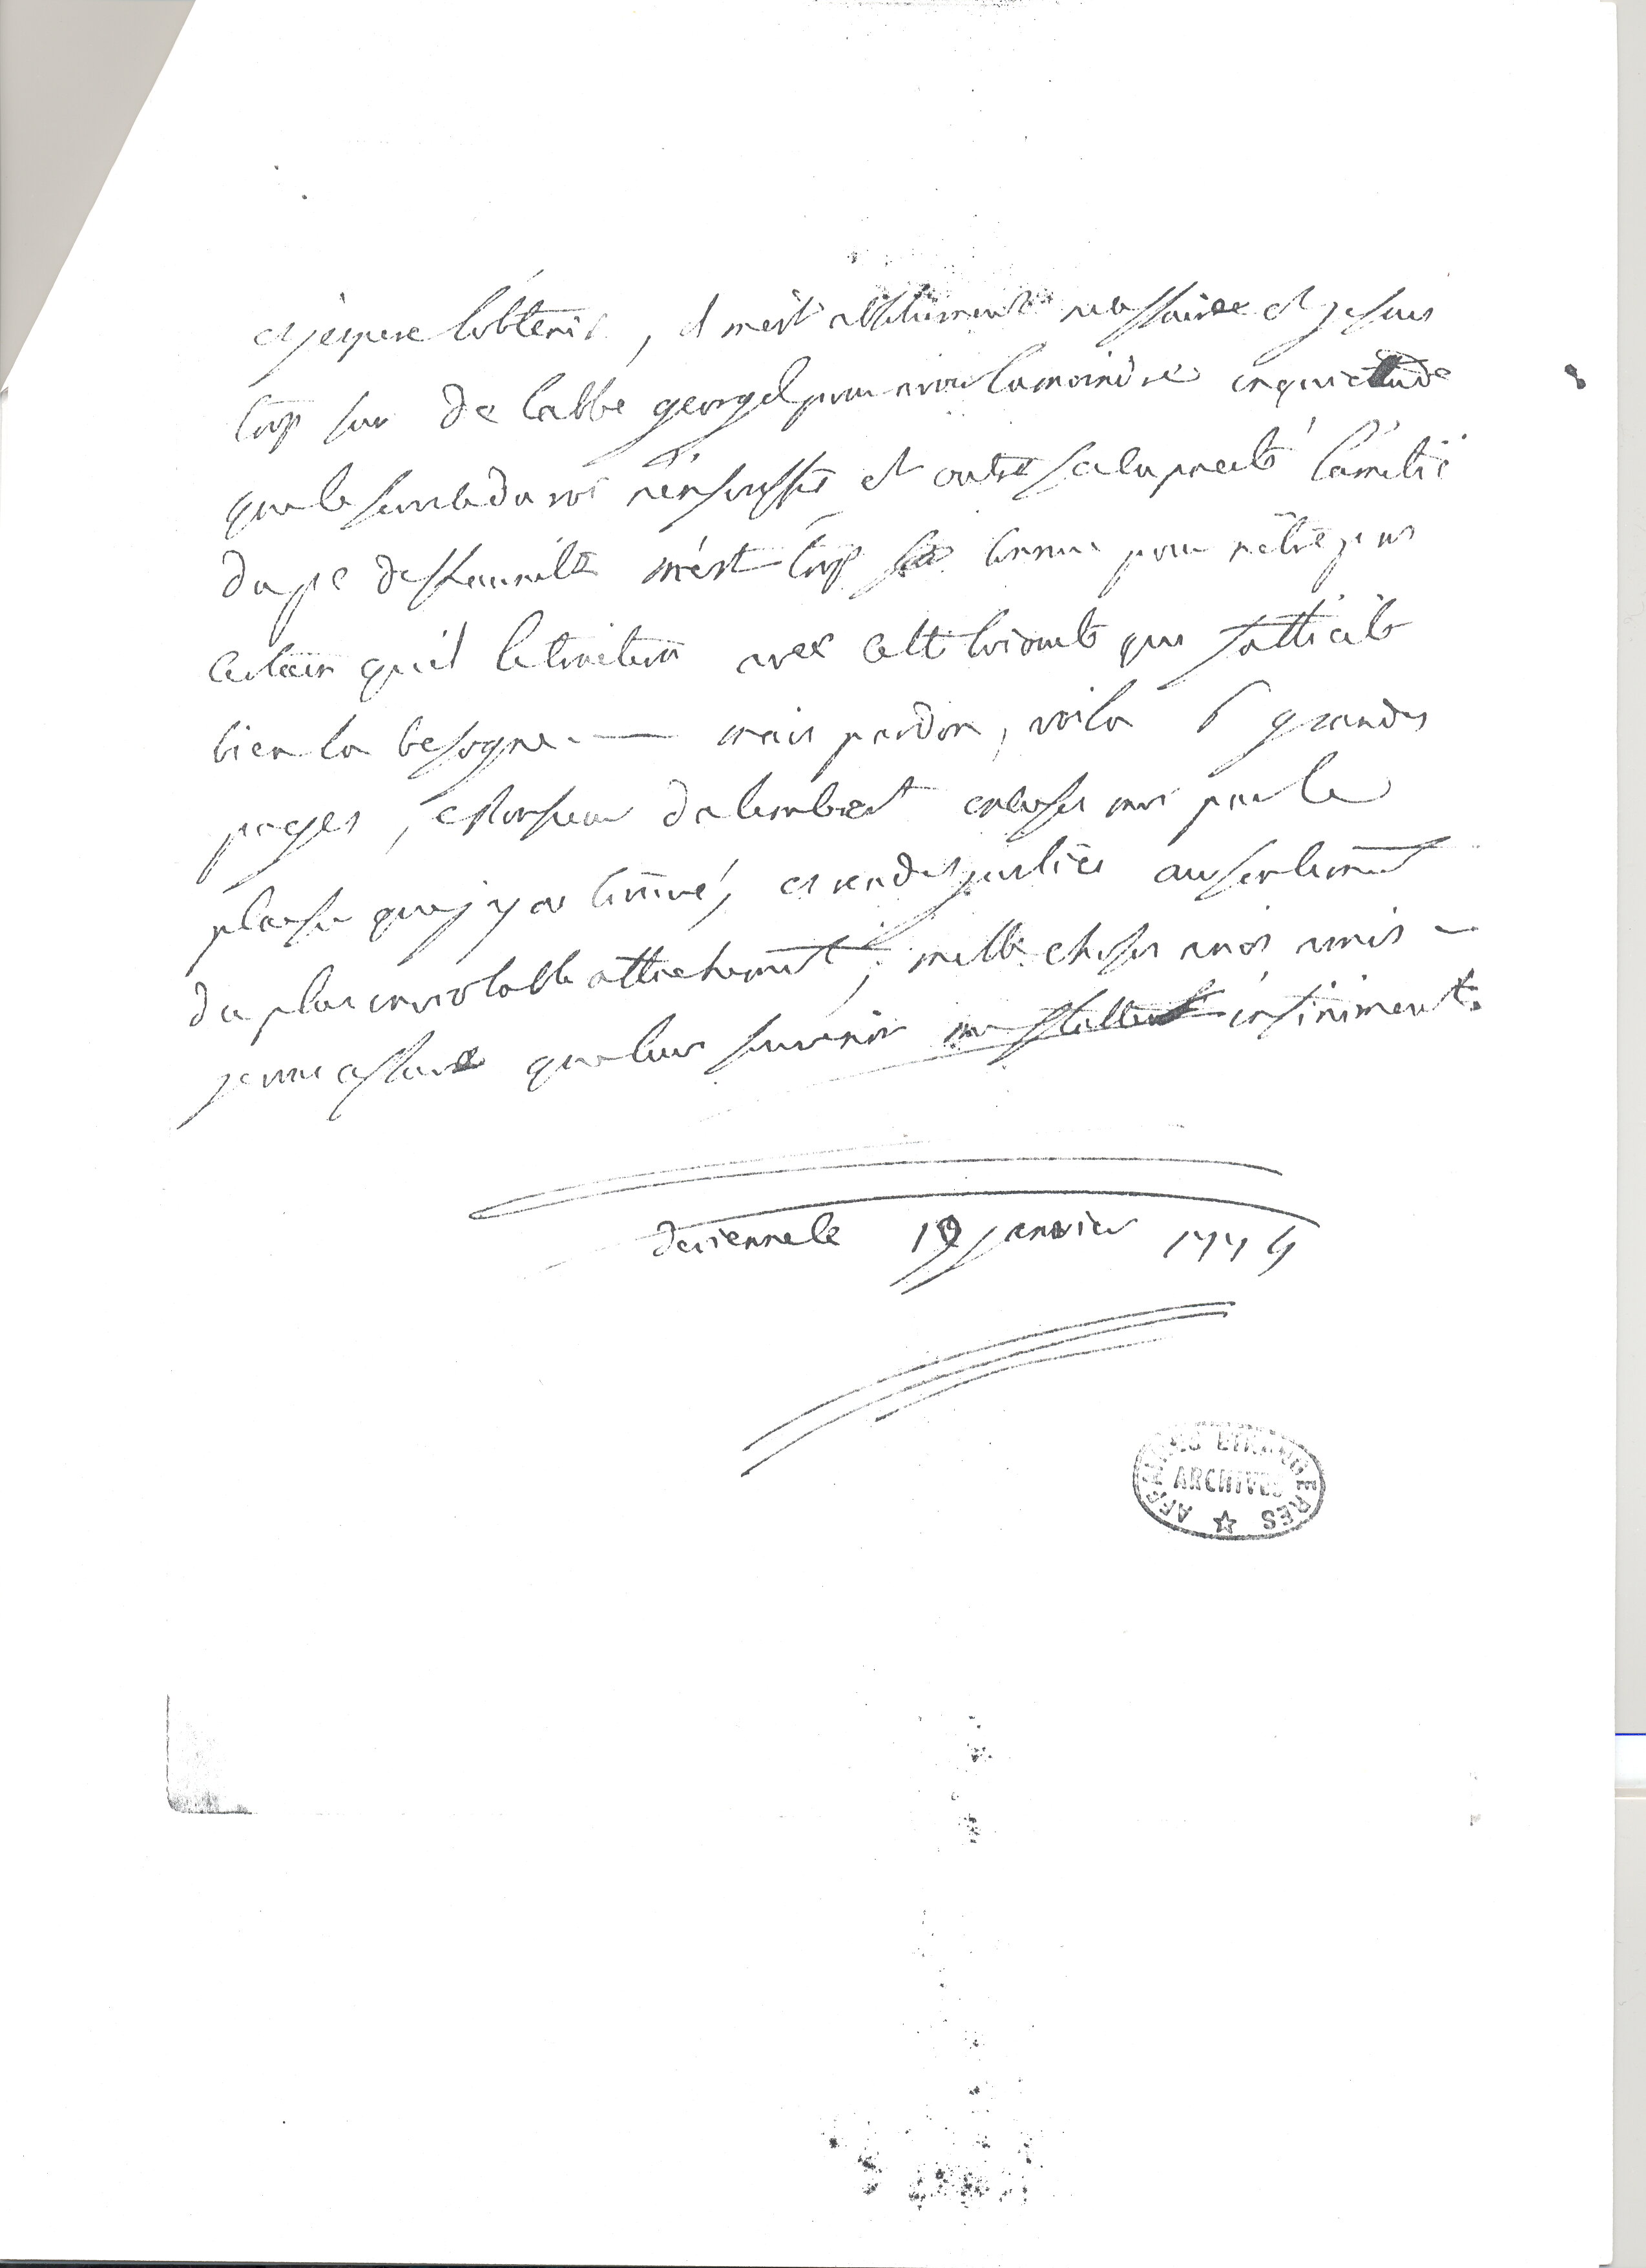 et jespere lobtenir, il mest absolument necessaire et je suis
trop sur de labbe georgel pour avoir la moindre inquietude
que le service du roi nen souffre et outre sa capacité lamitié
du pe de stainville m'est trop connue pour nêtre pas
certain qu'il le traitera avec cette qui facilite
bien la besogne. — mais pardon, voila 6 grandes
pages, Monsieur dalembert excuses moi par le
plaisir que j'y ai trouvé, et rendes justice au sentiment
du plus inviolable attachement, mille choses a nos amis —
je vous assure que leur souvenir me flatte infiniment.
de vienne le 19 janvier 1774
AFFAIRES ETRANGERES
ARCHIVES